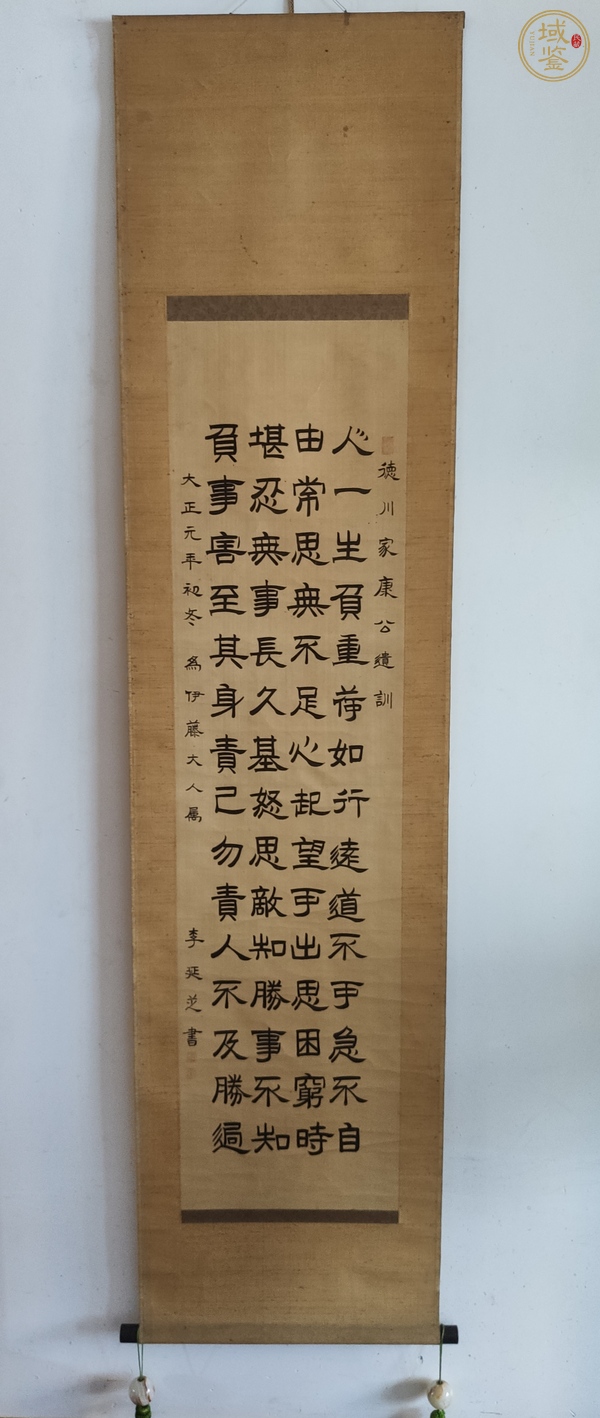 德川家康公遺訓
人一生負重荷如行遠道不可急不自
由常思無不足心起望可出思困窮時
堪忍無事長久基怒思敵知勝事不知
負事害至其身責己勿責人不及勝過
大正元年初冬 為伊藤大人属 李延芝書
域鉴
YUJIAN